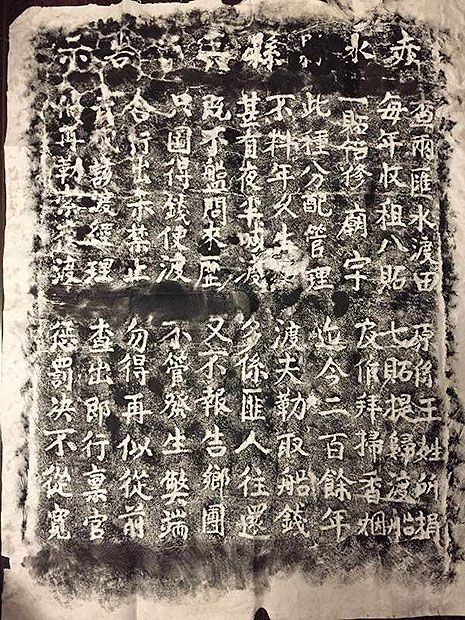 永 縣 告示
查兩匯水渡田 原係王姓所捐
每年收租八貼 七貼提歸渡船
一貼培修廟宇 及作拜掃香烟
此種分配管理 迄今二百餘年
不料年久生 渡夫勒取船錢
甚有夜半喊渡 多係匪人往還
既不盤問來歷 又不報告鄉團
只圖得錢使渡 不管發生弊端
合行出示禁止 勿得再似從前
該渡經理 查出即行稟官
倘再勒索 渡 懲罰決不從寬